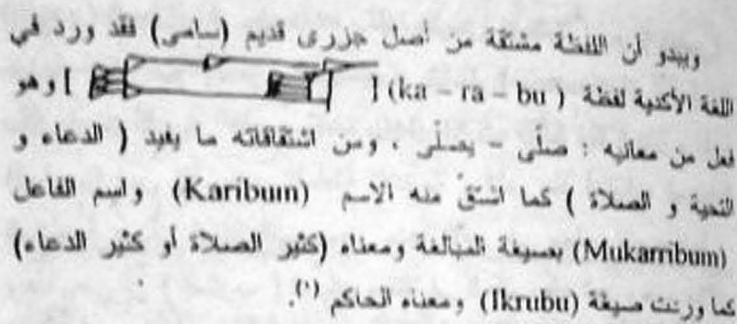 ويبدو أن اللفظة مشتقة من أصل جزرى قديم (سامى) فقد ورد في
اللغة الأكدية لفظة ( ka – ra – bu) [ ] وهو
فعل من معانيه : صلّى – يصلّى ، ومن اشتقاقاته ما يفيد ( الدعاء و
التحية و الصلاة ) كما اشتق منه الاسم (Karibum) واسم الفاعل
(Mukarribum) بصيغة المبالغة ومعناه (كثير الصلاة أو كثير الدعاء)
كما وردت صيغة (Ikrubu) ومعناه الحاكم (١).